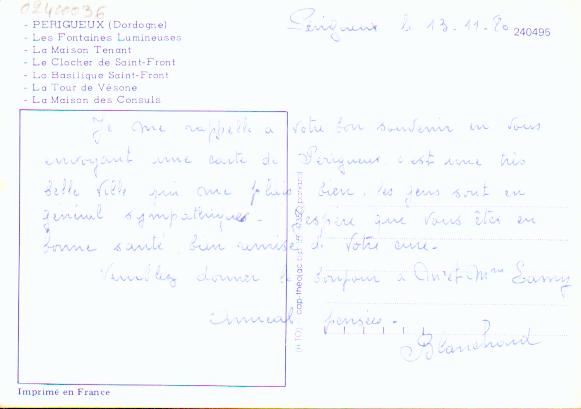 02400036
- PERIGUEUX (Dordogne)
- Les Fontaines Lumineuses
- La Maison Tenant
- Le Clocher de Saint-Front
- La Basilique Saint-Front
- La Tour de Vésone
- La Maison des Consuls
Périgueux le 13.11.80
240495
Je me rappelle à votre bon souvenir en vous
envoyant une carte de Périgueux, c'est une très
belle ville qui me plais bien. les gens sont en
général sympathiques. J'espère que vous êtes en
bonne santé, bien remise de votre cure.
Veuillez donner le bonjour à Mr et Mme Lamy
amical pensées.
Blanchard
(H.TO) cap-théojac
Imprimé en France